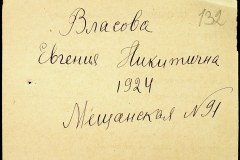 132
Власова
Евгения Никитична
1924
Мещанская N 91